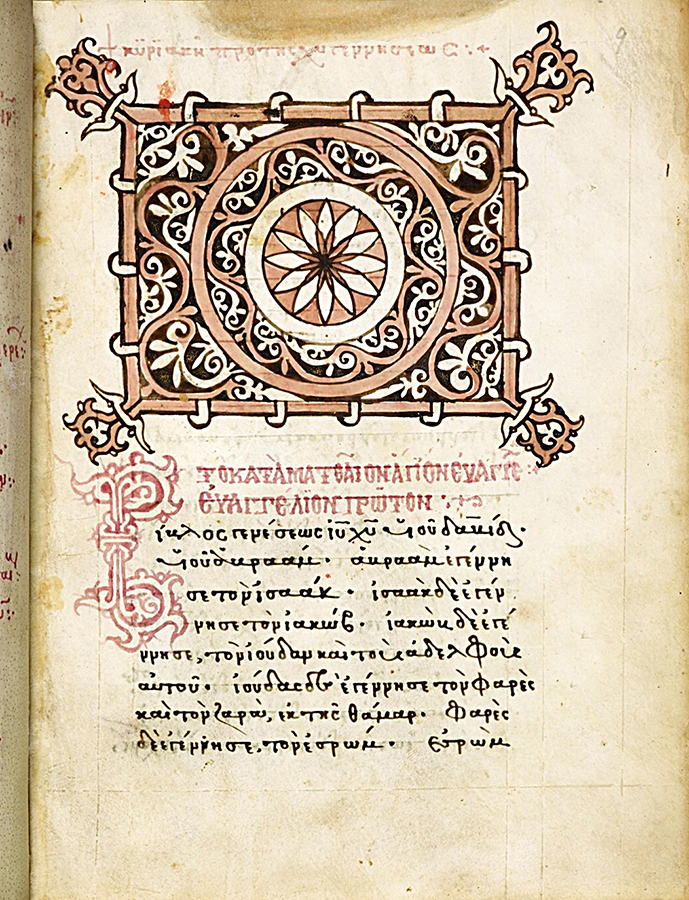 + κυριακῆ πρὸ τῆς χυ γεννήσεως :·
9
τὸ κατὰ ματθαῖον ἅγιον ευαγγε
ευαγγέλιον πρῶτον
Βίβλος γενέσεως ιυ χυ υἱοῦ δαυίδ·
υἱοῦ ἀβραάμ· ἀβραὰμ ἐγέννη
σε τὸν ἰσαάκ· ἰσαὰκ δὲ ἐγέν
νησε τὸν ἰακώβ· ἰακὼβ δὲ ἐγέ
ννησε, τὸν ἰούδαν καὶ τοὺς ἀδελφοὺς
αὐτοῦ· ἰούδας δὲ ἐγέννησε τὸν φαρὲς
καὶ τὸν ζαρὰ, ἐκ τῆς θάμαρ· Φαρὲς
δὲ ἐγέννησε, τὸν ἐσρώμ· Εσρὼμ